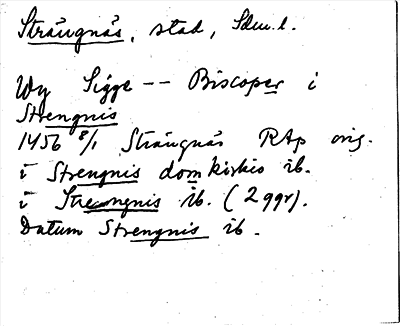 Strängnäs, stad, Sdm. l.
Wy Sigge -- Biscoper i
Strengnis
1456 8/1 Strängnäs RAp orig.
i Strengnis domkirkis ib.
i Strengnis ib. (2 ggr).
Datum Strengnis ib.